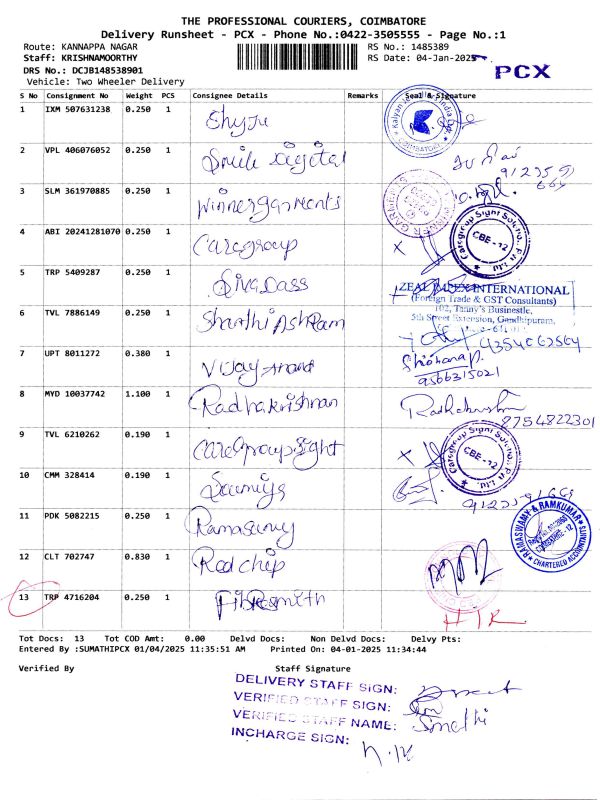 THE PROFESSIONAL COURIERS, COIMBATORE
Delivery Runsheet - PCX - Phone No.:0422-3505555 - Page No.:1
Route: KANNAPPA NAGAR RS No.: 1485389
Staff: KRISHNAMOORTHY RS Date: 04-Jan-2025
DRS No.: DCJB148538901
PCX
Vehicle: Two Wheeler Delivery
S No Consignment No Weight PCS Consignee Details Remarks Seal & Signature
1 IXM 507631238 0.250 1 Shyju
2 VPL 406076052 0.250 1 Smile Digital
3 SLM 361970885 0.250 1 Winnergarments
4 ABI 20241281070 0.250 1 Caregroup
Caregroup Sight CBE-12
5 TRP 5409287 0.250 1 Siva Dass
ZEAL IMPEX INTERNATIONAL
(Foreign Trade & GST Consultants)
102, Tanny's Businestle,
5th Street Extension, Gandhipuram,
6 TVL 7886149 0.250 1 Shanthi Ashram
7 UPT 8011272 0.380 1 Vijay Anand
9566315021
8 MYD 10037742 1.100 1 Radhakrishnan Radhakrishnan
8754822301
9 TVL 6210262 0.190 1 Caregroup Sight
Caregroup Sight CBE-12
10 CMM 328414 0.190 1 Sowmiya
11 PDK 5082215 0.250 1 Ramasamy
RAMASWAMY & RAMKUMAR
CHARTERED ACCOUNTANTS
12 CLT 702747 0.830 1 Redchip
13 TRP 4716204 0.250 1 Fibresmith
Tot Docs: 13 Tot COD Amt: 0.00 Delvd Docs: Non Delvd Docs: Delvy Pts:
Entered By :SUMATHIPCX 01/04/2025 11:35:51 AM Printed On: 04-01-2025 11:34:44
Verified By Staff Signature
DELIVERY STAFF SIGN:
VERIFIED STAFF SIGN:
VERIFIED STAFF NAME:
INCHARGE SIGN: